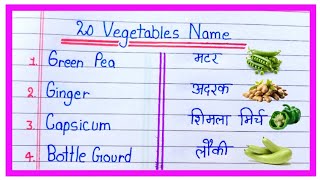 20 Vegetables Name
1. Green Pea मटर
2. Ginger अदरक
3. Capsicum शिमला मिर्च
4. Bottle Gourd लौकी